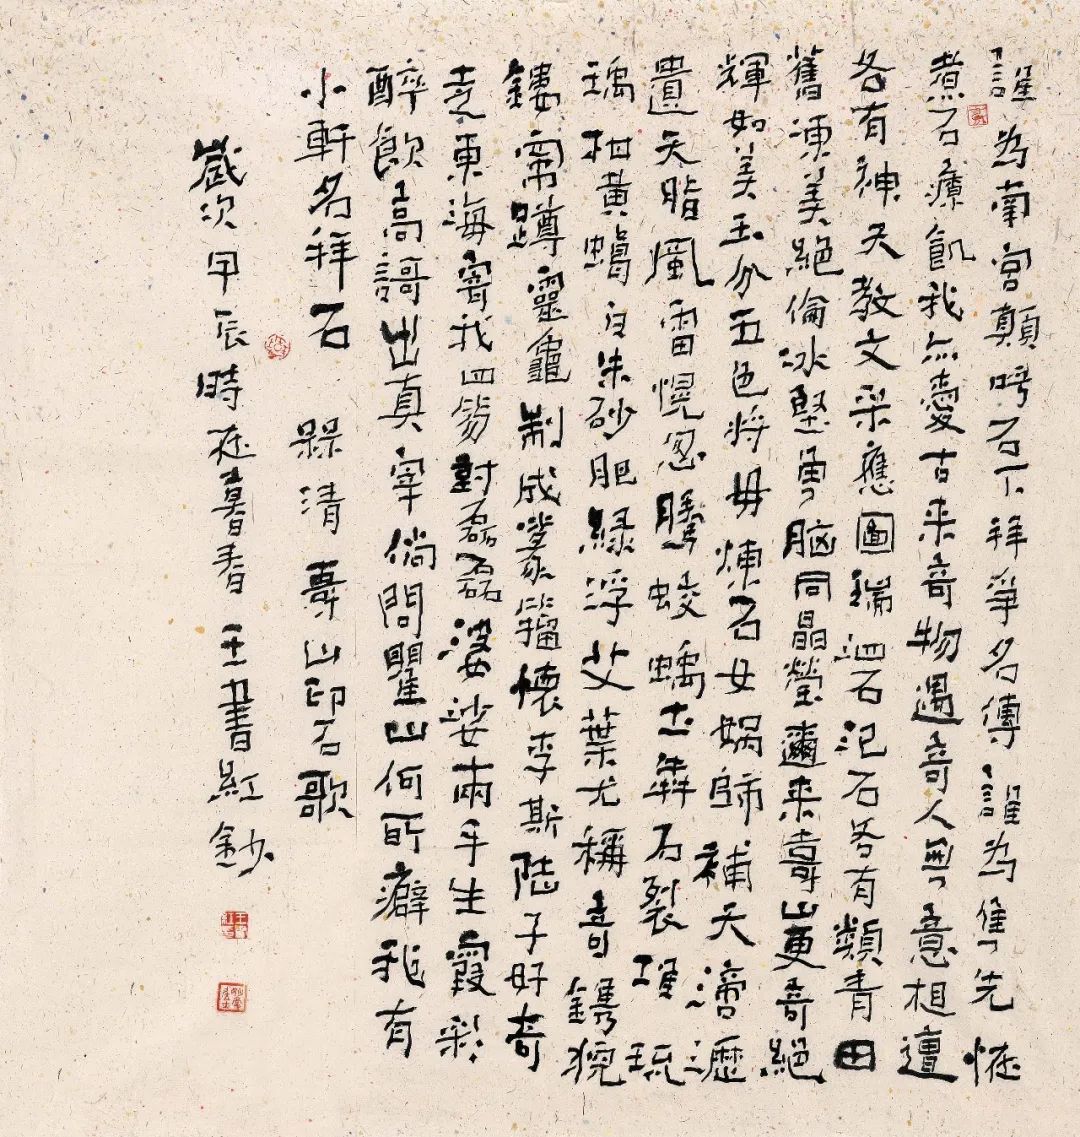 誰為南宮顛呼石下拜爭名傳誰為焦先恠
煮石療飢我亦愛古來奇物遇奇人無意相遭
各有神天教文采應圖瑞泗石汜石各有類青田
舊凍美絕倫冰堅腦同晶瑩邇來壽山更奇絕
輝如美玉分五色將毋煉石女媧師補天滴瀝
遺天脂風雷愰忽騰蛟螭土犇石裂堆琉
璃柑黃蠟白朱砂肥綠浮艾葉尤稱奇鐫猊
鏤蹲靈龜制成篆籀懷李斯陸子好奇
走東海寄我四笏對磊磊婆娑兩手生霞彩
醉飲高謌出真宰倘問瞿山何所癖我有
小軒名拜石 槑清壽山印石歌
歲次甲辰時在暮春王書紅鈔